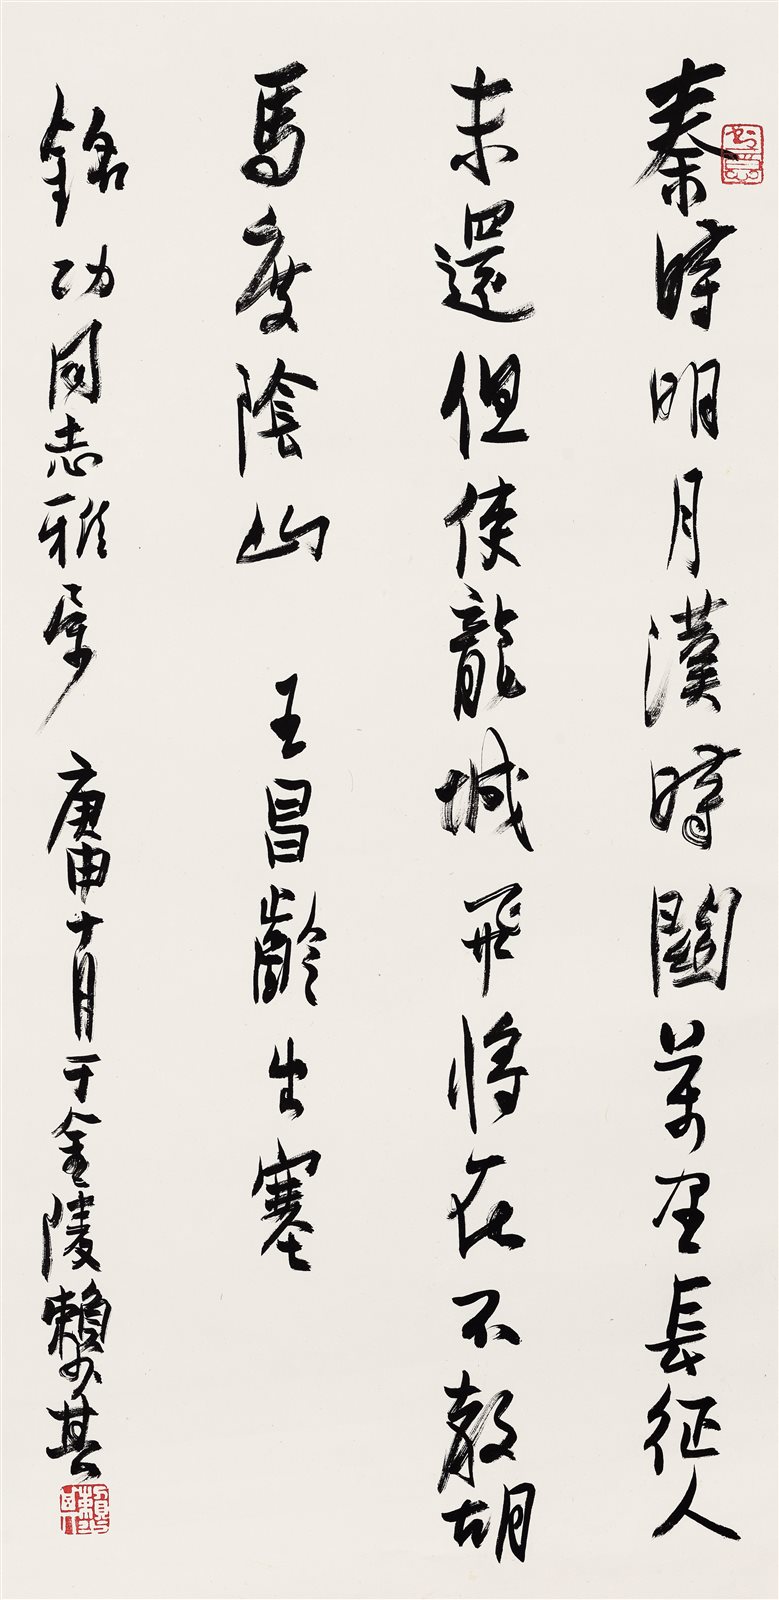 秦時明月漢時關萬里長征人
未還但使龍城飛將在不教胡
馬度陰山 王昌齡出塞
銘功同志雅屬 庚申十月于金陵賴少其